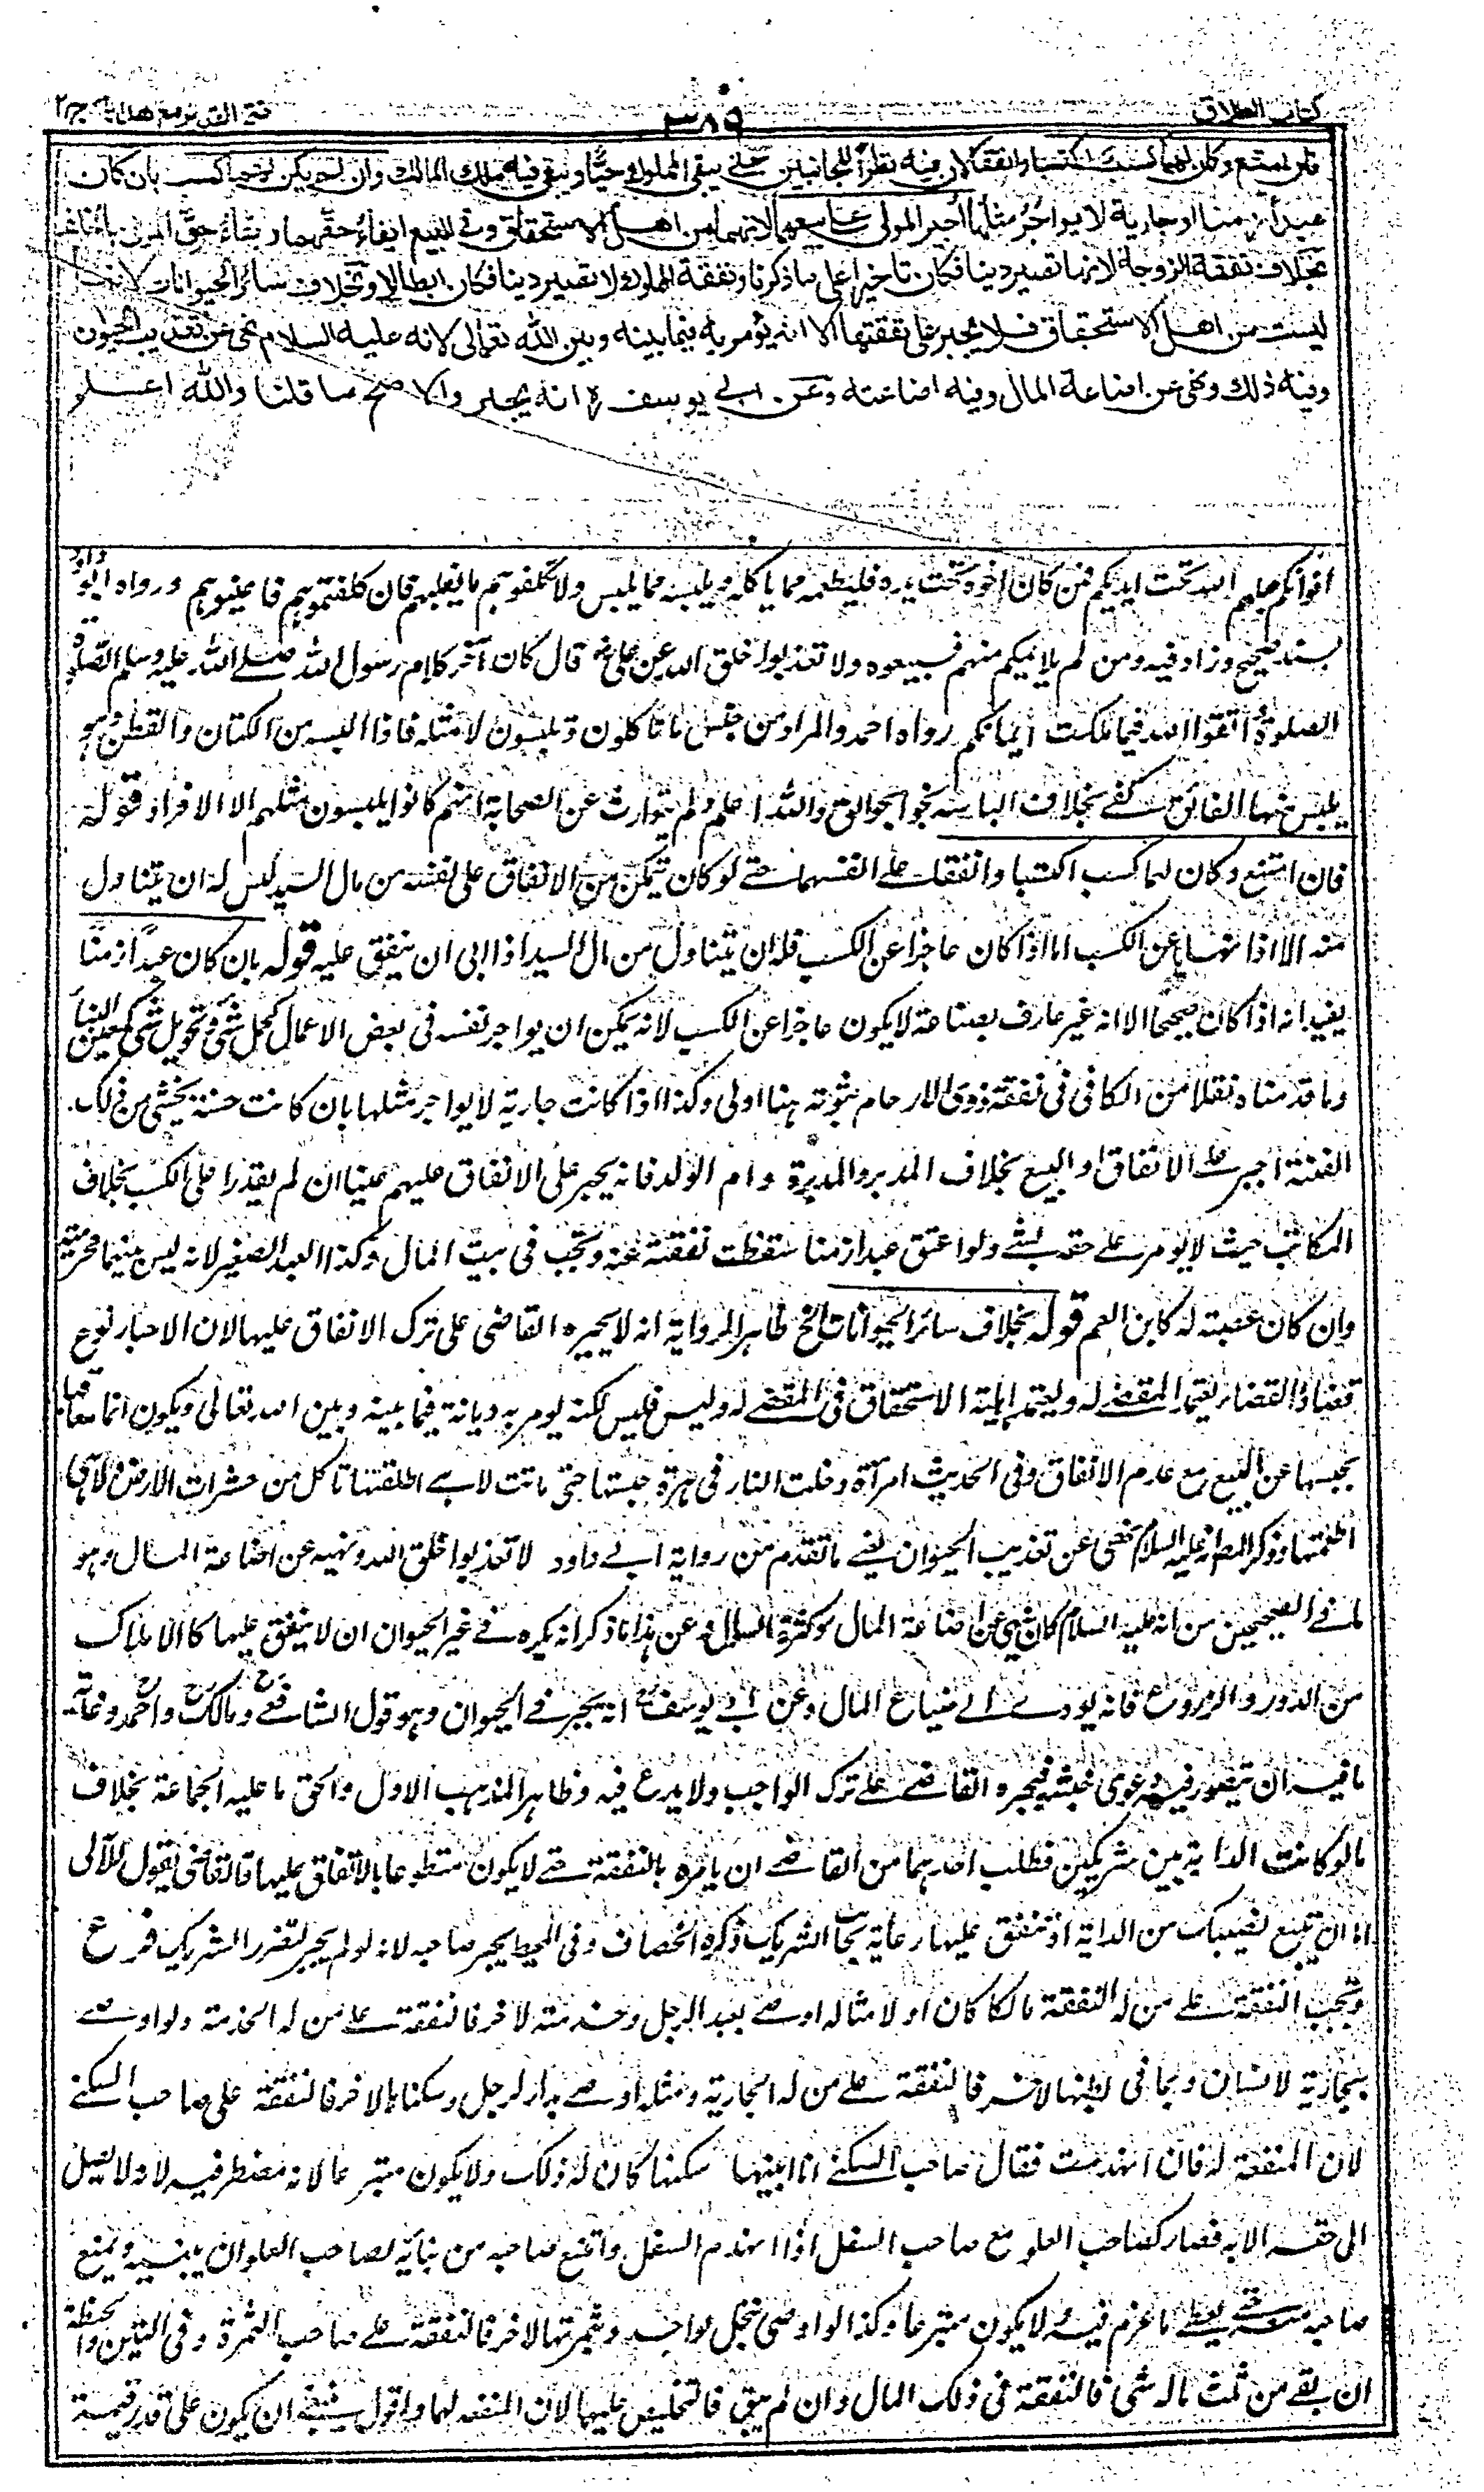 كتاب الطلاق
٣٨٩
فتح القدير مع هدايه ج٢
فان امتنع وكان لهما كسب اكتسبا وانفقا لان فيه نظرا للجانبين حتى يبقى المملوك حيًّا ويبقى فيه ملك المالك وان لم يكن لهما كسب بان كان
عبدا زمنا او جارية لا يواجر مثلها اجبر المولى على بيعهما لانهما من اهل الاستحقاق وفي البيع ايفاء حقهما وبقاء حق المولى بالخلف
بخلاف نفقة الزوجة لانها تصير دينا فكان تاخيرا على ما ذكرنا ونفقة المملوك لا تصير دينا فكان ابطالا وبخلاف سائر الحيوانات لانها
ليست من اهل الاستحقاق فلا يجبر على نفقتها الا انه يؤمر به فيما بينه وبين الله تعالى لانه عليه السلام نهى عن تعذيب الحيوان
وفيه ذلك ونهى عن اضاعة المال وفيه اضاعته وعن ابي يوسف ره انه يجبر والاصح ما قلنا والله اعلم
اخوانكم جعلهم الله تحت ايديكم فمن كان اخوه تحت يده فليطعمه مما ياكله ويلبسه مما يلبس ولا تكلفوهم ما يغلبهم فان كلفتموهم فاعينوهم ورواه ابو داود
بسند صحيح وزاد فيه ومن لم يلايمكم منهم فبيعوه ولا تعذبوا خلق الله عن علي رض قال كان آخر كلام رسول الله صلى الله عليه وسلم الصلوة
الصلوة اتقوا الله فيما ملكت ايمانكم رواه احمد والمراد من جنس ما تاكلون وتلبسون لا مثله فاذا البسه من الكتان والقطن وهو
يلبس منها الفائق كفى بخلاف الباسه نحو الجوالق والله اعلم ولم يتوارث عن الصحابة انهم كانوا يلبسون مثلهم الا الافراد قوله
فان امتنع وكان لهما كسب اكتسبا وانفقا على انفسهما حتى لو كان يتمكن من الانفاق على نفسه من مال السيد ليس له ان يتناول
منه الا اذا نهاه عن الكسب اما اذا كان عاجزا عن الكسب فله ان يتناول من مال السيد اذا ابى ان ينفق عليه قوله بان كان عبدا زمنا
يفيد انه اذا كان صحيحا الا انه غير عارف بصناعة لا يكون عاجزا عن الكسب لانه يمكن ان يواجر نفسه في بعض الاعمال كحمل شي وتحويل شي كمعين البناء
وما قدمناه نقلا من الكافي في نفقة ذوي الارحام ثبوته هنا اولى وكذا اذا كانت جارية لا يواجر مثلها بان كانت حسنة يخشى من ذلك
الفتنة اجبر على الانفاق او البيع بخلاف المدبر والمدبرة وام الولد فانه يجبر على الانفاق عليهم عينا ان لم يقدرا على الكسب بخلاف
المكاتب حيث لا يومر على حقه بشي ولو اعتق عبدا زمنا سقطت نفقته عنه وتجب في بيت المال وكذا العبد الصغير لانه ليس بينهما محرمية
وان كان عصبته له كابن العم قوله بخلاف سائر الحيوانات الخ ظاهر الرواية انه لا يجبره القاضي على ترك الانفاق عليها لان الاجبار نوع
قضاء والقضاء يعتمد المقضي له ويعتمد اهلية الاستحقاق في المقضي له وليس فليس لكنه يومر به ديانة فيما بينه وبين الله تعالى ويكون اثما معاقبا
بحبسها عن البيع مع عدم الانفاق وفي الحديث امرأة دخلت النار في هرة حبستها حتى ماتت لا هي اطلقتها تاكل من حشرات الارض ولا هي
اطعمتها وذكر المص انه عليه السلام نهى عن تعذيب الحيوان يعني ما تقدم من رواية ابي داود لا تعذبوا خلق الله ونهيه عن اضاعة المال وهو
ما في الصحيحين من انه عليه السلام كان ينهى عن اضاعة المال وكثرة السوال وعن هذا ما ذكر انه يكره في غير الحيوان ان لا ينفق عليها كالاملاك
من الدور والزروع فانه يودي الى ضياع المال وعن ابي يوسف انه يجبر في الحيوان وهو قول الشافعي ومالك واحمد وغاية
ما فيه ان يتصور فيه دعوى حسبة فيجبره القاضي على ترك الواجب ولا بدع فيه وظاهر المذهب الاول والحق ما عليه الجماعة بخلاف
ما لو كانت الدابة بين شريكين فطلب احدهما من القاضي ان يامره بالنفقة حتى لا يكون متطوعا بالانفاق عليها فالقاضي يقول للآبي
اما ان تبيع نصيبك من الدابة او تنفق عليها رعاية لجانب الشريك ذكره الخصاف وفي المحيط يجبر صاحبه لانه لو لم يجبر لتضرر الشريك فرع
وتجب النفقة على من له المنفعة مالكا كان او لا مثاله اوصى بعبد لرجل وخدمته لاخر فالنفقة على من له الخدمة ولو اوصى
بجارية لانسان وبما في بطنها لاخر فالنفقة على من له الجارية ومثله اوصى بدار لرجل وسكناها لاخر فالنفقة على صاحب السكنى
لان المنفعة له فان انهدمت فقال صاحب السكنى انا ابنيها واسكنها كان له ذلك ولا يكون متبرعا لانه مضطر فيه لانه لا يصل
الى حقه الا به فصار كصاحب العلو مع صاحب السفل اذا انهدم السفل وامتنع صاحبه من بنائه لصاحب العلو ان يبنيه ويمنع
صاحبه منه حتى يعطي ما غرم فيه ولا يكون متبرعا وكذا لو اوصى بنخل لواحد وثمرتها لاخر فالنفقة على صاحب الثمرة وفي التبن والحنطة
ان بقي من ثلث ماله شي فالنفقة في ذلك المال وان لم يبق فالتخليص عليهما لان المنفعة لهما واقول ينبغي ان يكون على قدر قيمة